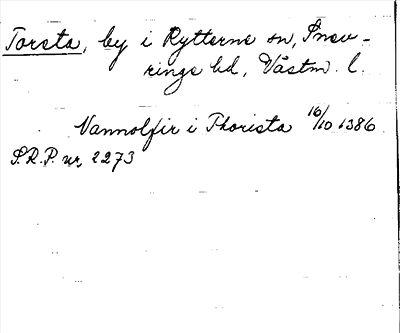 Torsta, by i Rytterne sn, Snev-
ringe hd, Västm. l.
Vannolfir i Thorista 16/10 1386
S.R.P. nr, 2273